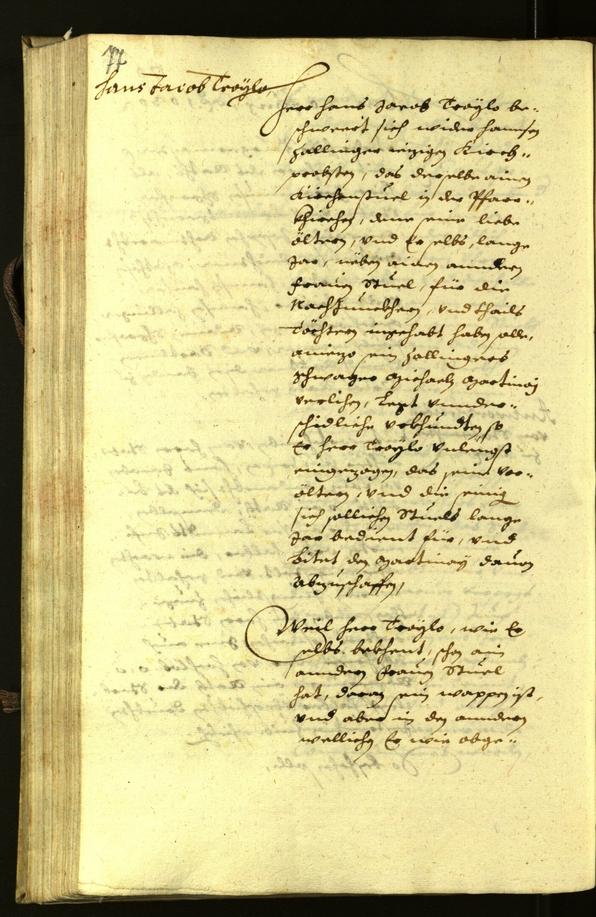 77
Hans Jacob Troylo
Herr Hans Jacob Troylo be-
schwert sich wider Hannsen
Zallinger iezigen Kirch-
probsten, das derselbe ainen
Kirchenstuel in der Pfarr-
khirchen, deme seine liebe
ältern, und Er selbs, lange
Jar, neben ainen anndern
Frauen Stuel, für die
Nachkhumen, und thails
Töchtern ingehabt haben solle,
aniezo sein Zallingers
Schwager Michaeln Martinoy
verlihen, legt unnder-
schidliche Urkhundten so
Er Herr Troylo
eingezogen, das seine vor-
ältern, und die seinig
sich sollichen Stuels lange
Jar bedient für, und
bitet den Martinoy davon
abzuschaffen,
Weil Herr Troylo, wie Er
selbs bekhent, schon ain
anndern Frauen Stuel
hat, daran sein wappen ist,
und aber in den anndern
wellichen Er wie obge-